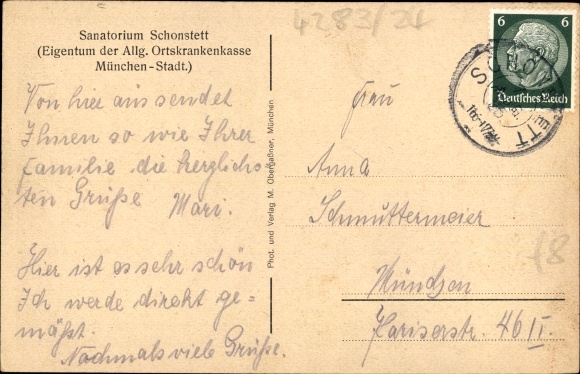 Sanatorium Schonstett
(Eigentum der Allg. Ortskrankenkasse
München-Stadt.)
Von hier aus sendet
Ihnen so wie Ihrer
Familie die herzlichs-
ten Grüße Mari.
Hier ist es sehr schön
Ich werde direkt ge-
mäßt.
Nochmals viele Grüße.
Phot. und Verlag M. Obergaßner, München
4283/24
6 6
Deutsches Reich
Frau
Anna
Schmuttermeier
München
46 II.
18